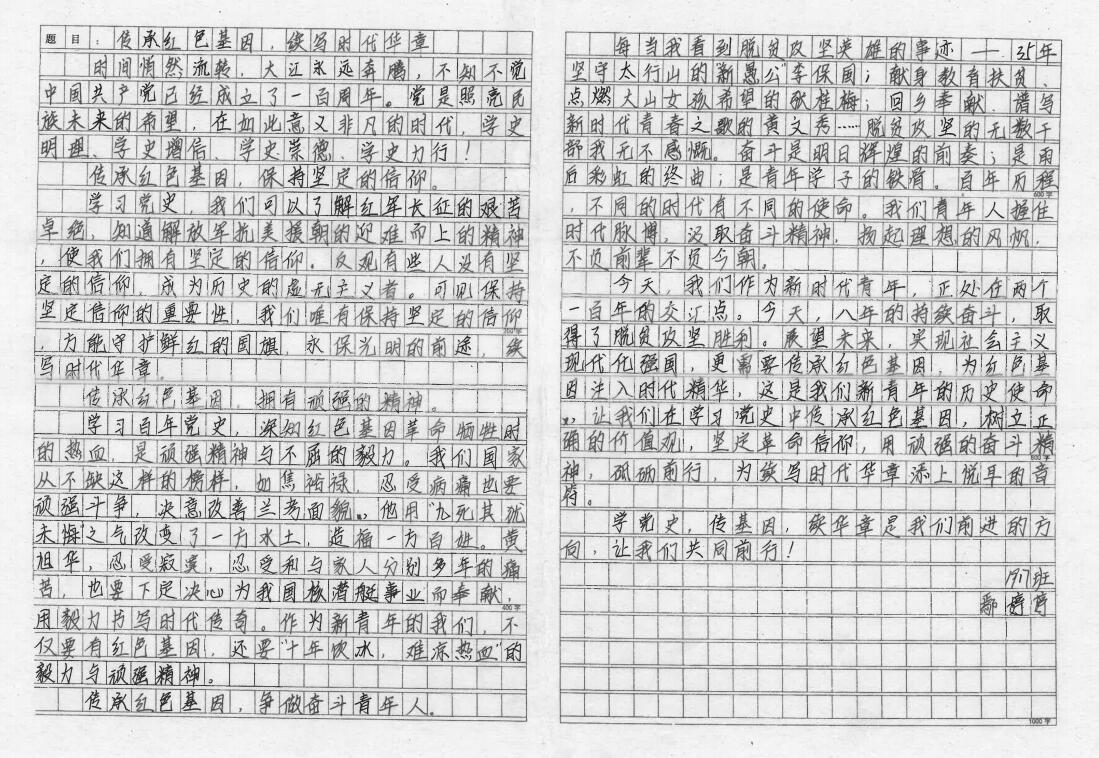 题目：传承红色基因，续写时代华章
时间悄然流转，大江永远奔腾，不知不觉
中国共产党已经成立了一百周年。党是照亮民
族未来的希望，在如此意义非凡的时代，学史
明理、学史增信、学史崇德、学史力行！
传承红色基因，保持坚定的信仰。
学习党史，我们可以了解红军长征的艰苦
卓绝，知道解放军抗美援朝的迎难而上的精神
，使我们拥有坚定的信仰。反观有些人没有坚
定的信仰，成为历史的虚无主义者。可见保持
坚定信仰的重要性，我们唯有保持坚定的信仰
200字
，方能守护鲜红的国旗，永保光明的前途，续
写时代华章。
传承红色基因，拥有顽强的精神。
学习百年党史，深知红色基因革命牺牲时
的热血，是顽强精神与不屈的毅力。我们国家
从不缺这样的榜样，如焦裕禄，忍受病痛也要
顽强斗争，决意改善兰考面貌，他用“九死其犹
未悔”之气改变了一方水土，造福一方百姓。黄
祖华，忍受寂寞，忍受和与家人分别多年的痛
苦，也要下定决心为我国核潜艇事业而奉献，
400字
用毅力书写时代传奇。作为新青年的我们，不
仅要有红色基因，还要“十年饮冰，难凉热血”的
毅力与顽强精神。
传承红色基因，争做奋斗青年人。
每当我看到脱贫攻坚英雄的事迹——35年
坚守太行山的“新愚公”李保国；献身教育扶贫、
点燃大山女孩希望的张桂梅；回乡奉献、谱写
新时代青春之歌的黄文秀……脱贫攻坚的无数干
部我无不感慨。奋斗是明日辉煌的前奏；是雨
后彩虹的终曲；是青年学子的铁骨。百年历程
600字
，不同的时代有不同的使命。我们青年人握住
时代脉搏，汲取奋斗精神，扬起理想的风帆，
不负前辈不负今朝。
今天，我们作为新时代青年，正处在两个
一百年的交汇点。今天，八年的持续奋斗，取
得了脱贫攻坚胜利。展望未来，实现社会主义
现代化强国，更需要传承红色基因，为红色基
因注入时代精华，这是我们新青年的历史使命
。让我们在学习党史中传承红色基因，树立正
确的价值观，坚定革命信仰，用顽强的奋斗精
800字
神，砥砺前行，为续写时代华章添上悦耳的音
符。
学党史，传基因，续华章是我们前进的方
向，让我们共同前行！
1917班
鄢婷婷
1000字